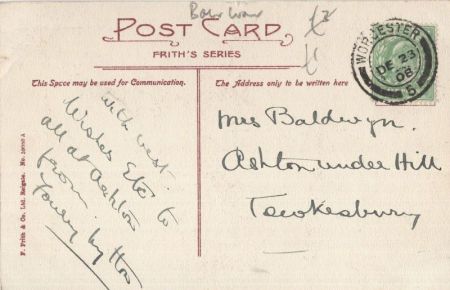 Boer War
£2
POST CARD
FRITH'S SERIES
£1
WORCESTER
DE 23
08
5
This Space may be used for Communication.
The Address only to be written here
with best
Wishes Etc to
all at Ashton
from
Mrs Baldwyn.
Ashton under Hill
Tewkesbury
F. Frith & Co. Ltd. Reigate.